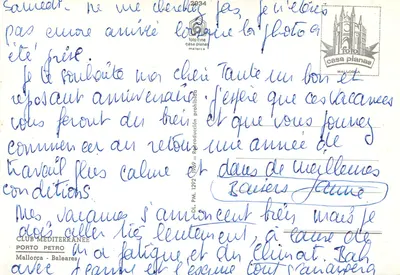 Samedi. ne me cherchez pas, je n'étais
pas encore arrivée lorsque la photo a
été prise.
Je te souhaite ma chère Tante un bon et
reposant anniversaire, j'espère que ces vacances
vous feront du bien et que vous pourrez
commencer au retour une année de
travail plus calme et dans de meilleures
conditions
Baisers Jeanne
Mes vacances s'annoncent bien mais je
dois aller très lentement, à cause de
ma fatigue et du climat. Bah
avec Jeanne et l'escrime tout s'arrangera
2034
casa planas
CLUB MEDITERRANÉE
PORTO PETRO
Mallorca - Baleares